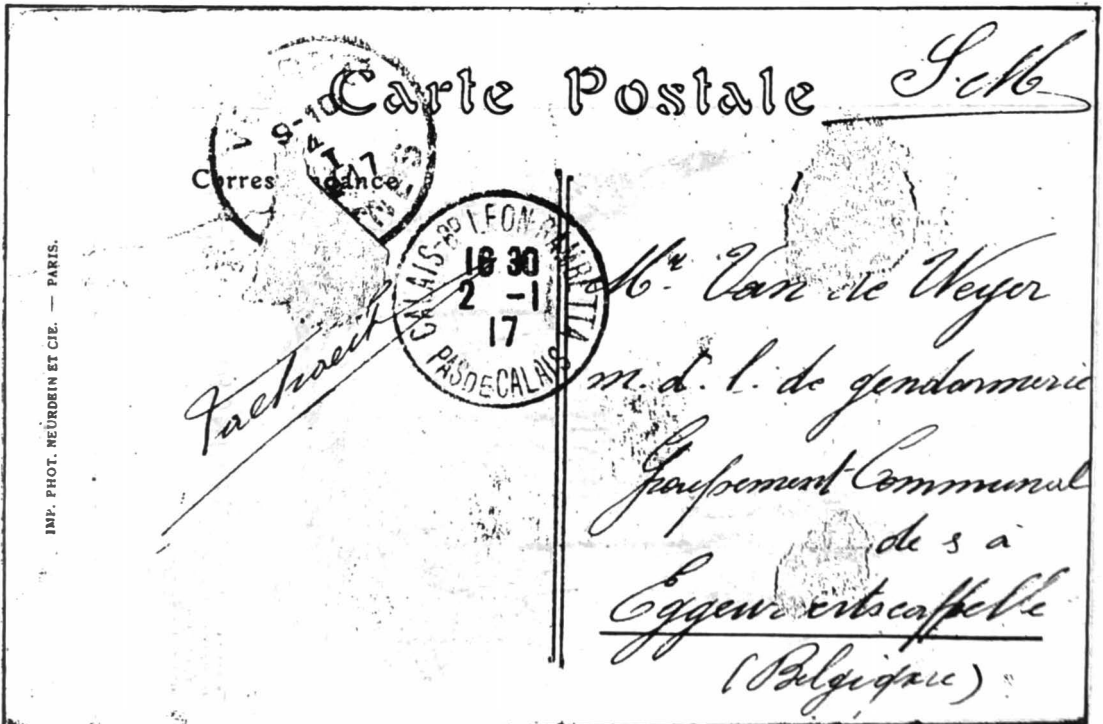 Carte Postale
S. M.
9-10
4
I
17
Corres dance
CALAIS-Bd LEON GAMBETTA
16 30
2 -1
17
PAS DE CALAIS
Mr. Van de Weyer
m. d. l. de gendarmerie
Groupement Communal
de s à
Eggew ertscappelle
(Belgique)
IMP. PHOT. NEURDEIN ET CIE. — PARIS.